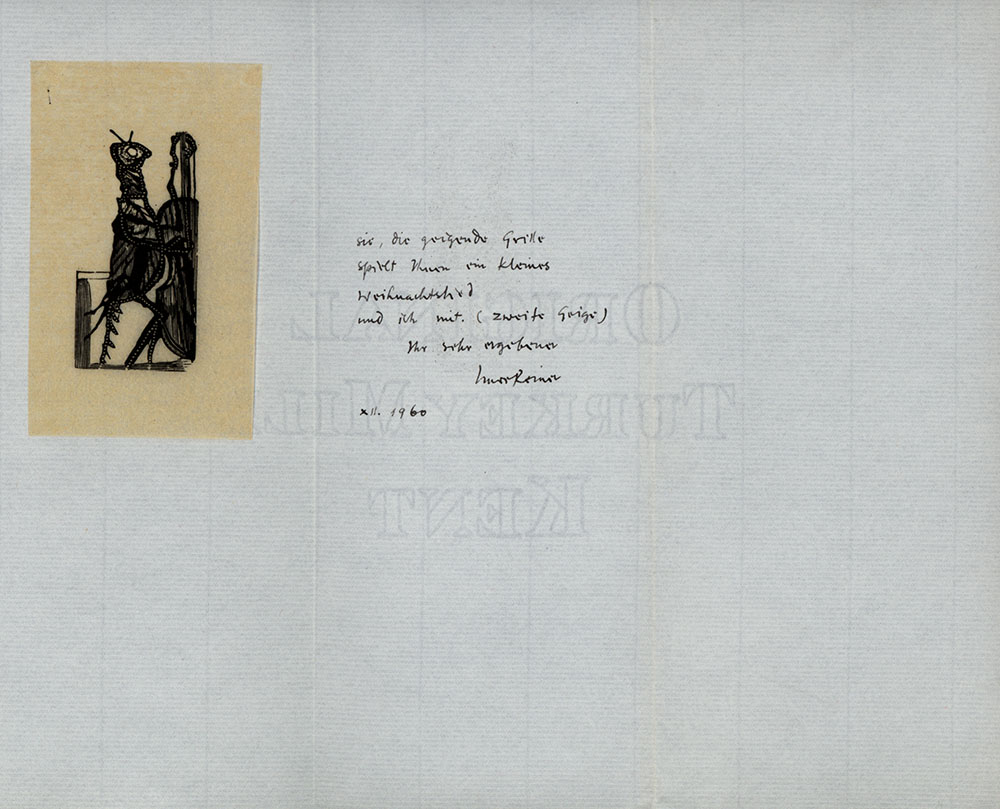 sie, die geigende Grille
spielt Ihnen ein kleines
Weihnachtslied
und ich mit. (zweite Geige)
Ihr sehr ergebener
Imre Reiner
XII. 1960
ORIGINAL
TURKEY MILL
KENT